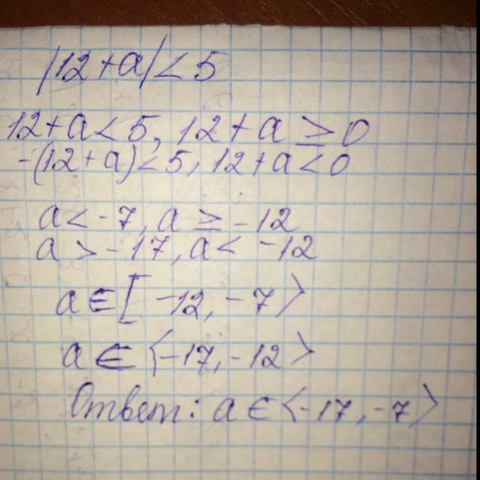 |12+a|<5
12+a<5, 12+a≥0
-(12+a)<5, 12+a<0
a<-7, a≥-12
a>-17, a<-12
a∈[-12,-7⟩
a∈⟨-17,-12⟩
Ответ: a∈⟨-17,-7⟩